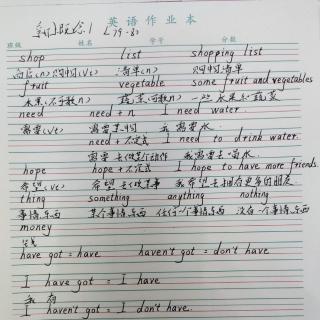 英语作业本
新概念1 (79-8)
班级 姓名 学号 分数
shop list shopping list
商店(n) 购物(vt) 清单(n) 购物清单
fruit vegetable some fruit and vegetables
水果(不可数n) 蔬菜(可数n) 一些水果和蔬菜
need need + n I need water.
需要(vt) 需要某物 我需要水
need + 不定式 I need to drink water.
需要去做某动作 我需要去喝水
hope hope + 不定式 I hope to have more friends.
希望(vt) 希望去做某事 我希望去拥有更多的朋友
thing something anything nothing
事情,东西 某个事情东西 任何一个事情东西 没有一个事情东西
money
钱
have got = have haven't got = don't have
I have got = I have
我有
I haven't got = I don't have.